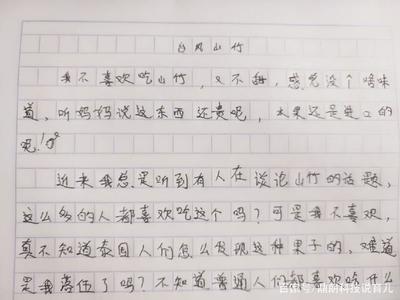 台风山竹
我不喜欢吃山竹，又不甜，感觉没个啥味
道，听妈妈说这东西还贵呢，水果还是进口的
呢！
近来我总是听到有人在谈论山竹的话题，
这么多的人都喜欢吃这个吗？可是我不喜欢，
真不知道泰国人们怎么发现这种果子的，难道
是我落伍了吗？不知道普通人们都喜欢吃什么
百家号/鼎韵科技说育儿